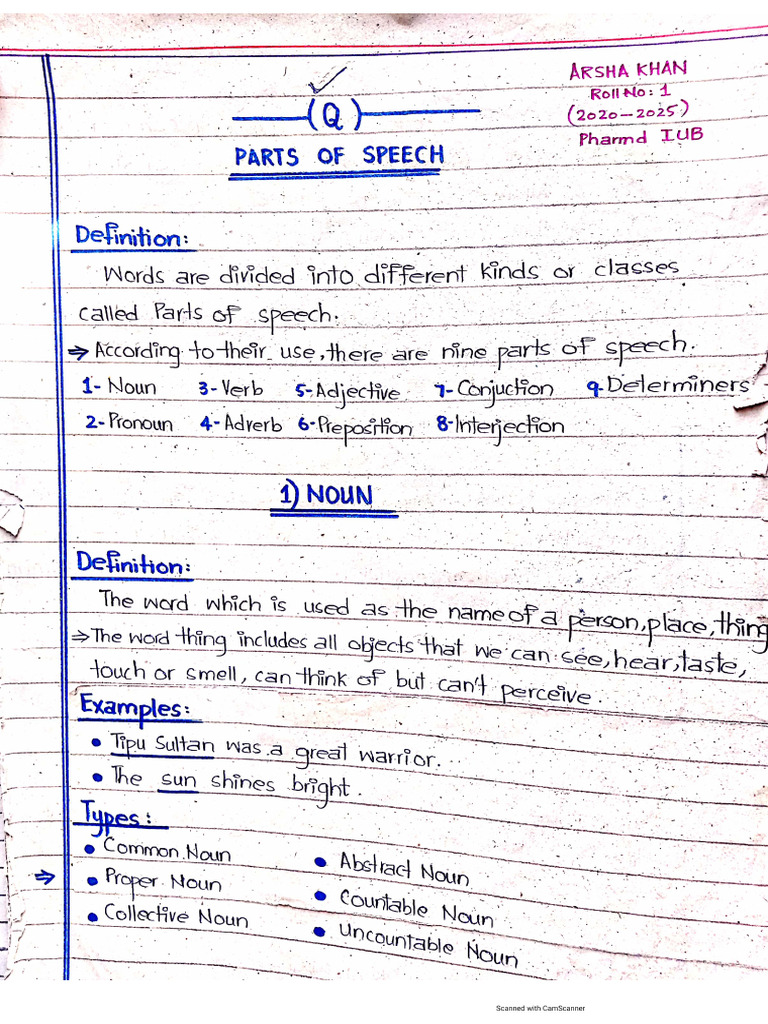 ARSHA KHAN
Roll No: 1
(2020-2025)
Pharmd IUB
(Q)
PARTS OF SPEECH
Definition:
Words are divided into different kinds or classes
called Parts of speech.
⇒ According to their use, there are nine parts of speech.
1- Noun 3- Verb 5- Adjective 7- Conjuction 9- Determiners
2- Pronoun 4- Adverb 6- Preposition 8- Interjection
1) NOUN
Definition:
The word which is used as the name of a person, place, thing
⇒ The word thing includes all objects that we can see, hear, taste,
touch or smell, can think of but can't perceive.
Examples:
• Tipu Sultan was a great warrior.
• The sun shines bright.
Types:
• Common Noun • Abstract Noun
⇒ • Proper Noun • Countable Noun
• Collective Noun • Uncountable Noun
Scanned with CamScanner